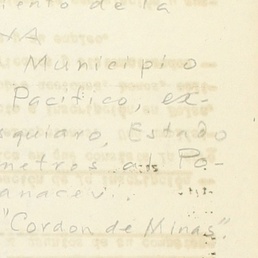 iento de la
NA
Municipio
Pacífico, ex-
squiaro, Estado
metros al Po-
anacev..
"Cordon de Minas".